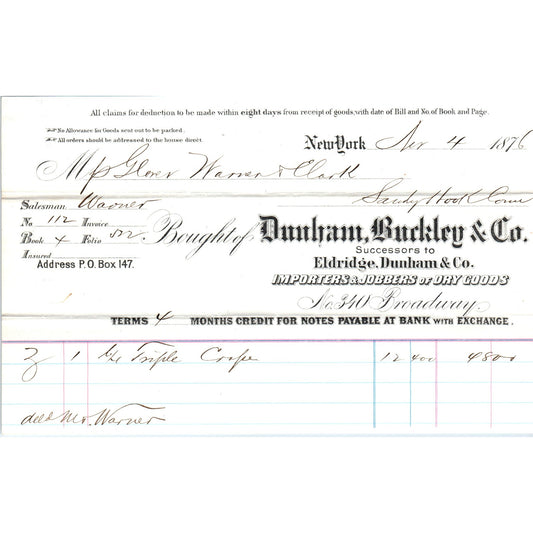 All claims for deduction to be made within eight days from receipt of goods, with date of Bill and No. of Book and Page.
No Allowance for Goods sent out to be packed.
All orders should be addressed to the house direct.
New York Nov 4 1876
M/s Glover Warner & Clark
Sandy Hook Conn
Salesman Warner
No 112 Invoice
Book 4 Folio 522
Insured
Address P.O. Box 147.
Bought of Dunham, Buckley & Co.
Successors to
Eldridge, Dunham & Co.
IMPORTERS & JOBBERS OF DRY GOODS
No. 340 Broadway.
TERMS 4 MONTHS CREDIT FOR NOTES PAYABLE AT BANK WITH EXCHANGE.
1 Triple Crape 12 400 4800
deld Mr. Warner